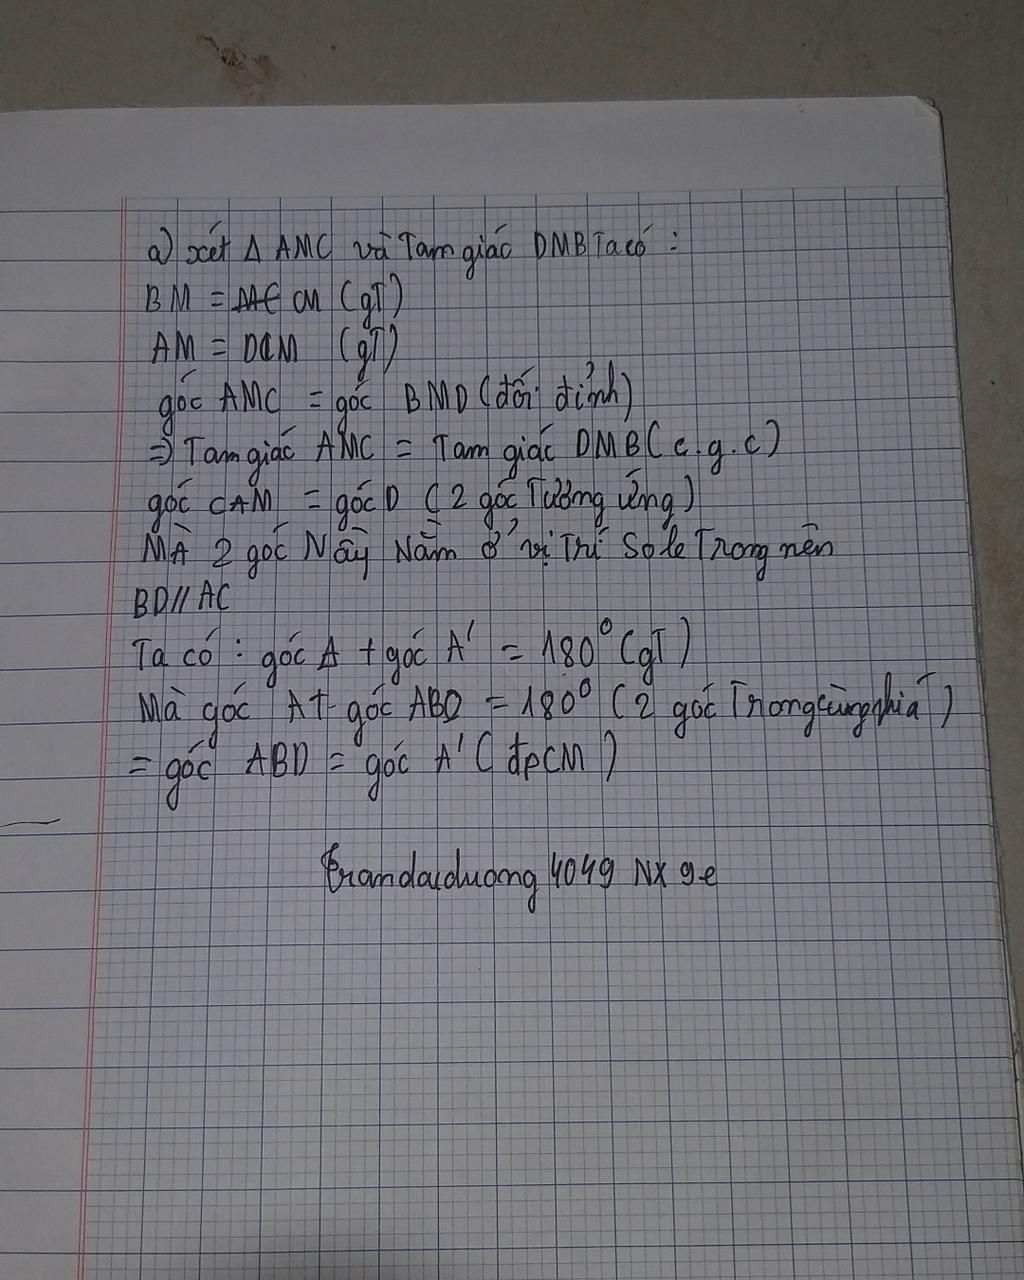 a) xét Δ AMC và Tam giác DMB Ta có :
BM = CM (gT)
AM = DM (gT)
góc AMC = góc BMD (đối đỉnh)
=> Tam giác AMC = Tam giác DMB (c.g.c)
góc CAM = góc D (2 góc Tương ứng)
MÀ 2 góc Nãy Nằm ở vị Trí So le Trong nên
BD // AC
Ta có : góc A + góc A' = 180° (gT)
Mà góc A + góc ABD = 180° (2 góc Trong cùng phía)
= góc ABD = góc A' (đpCM)
trandaiduong 4049 NX 9e